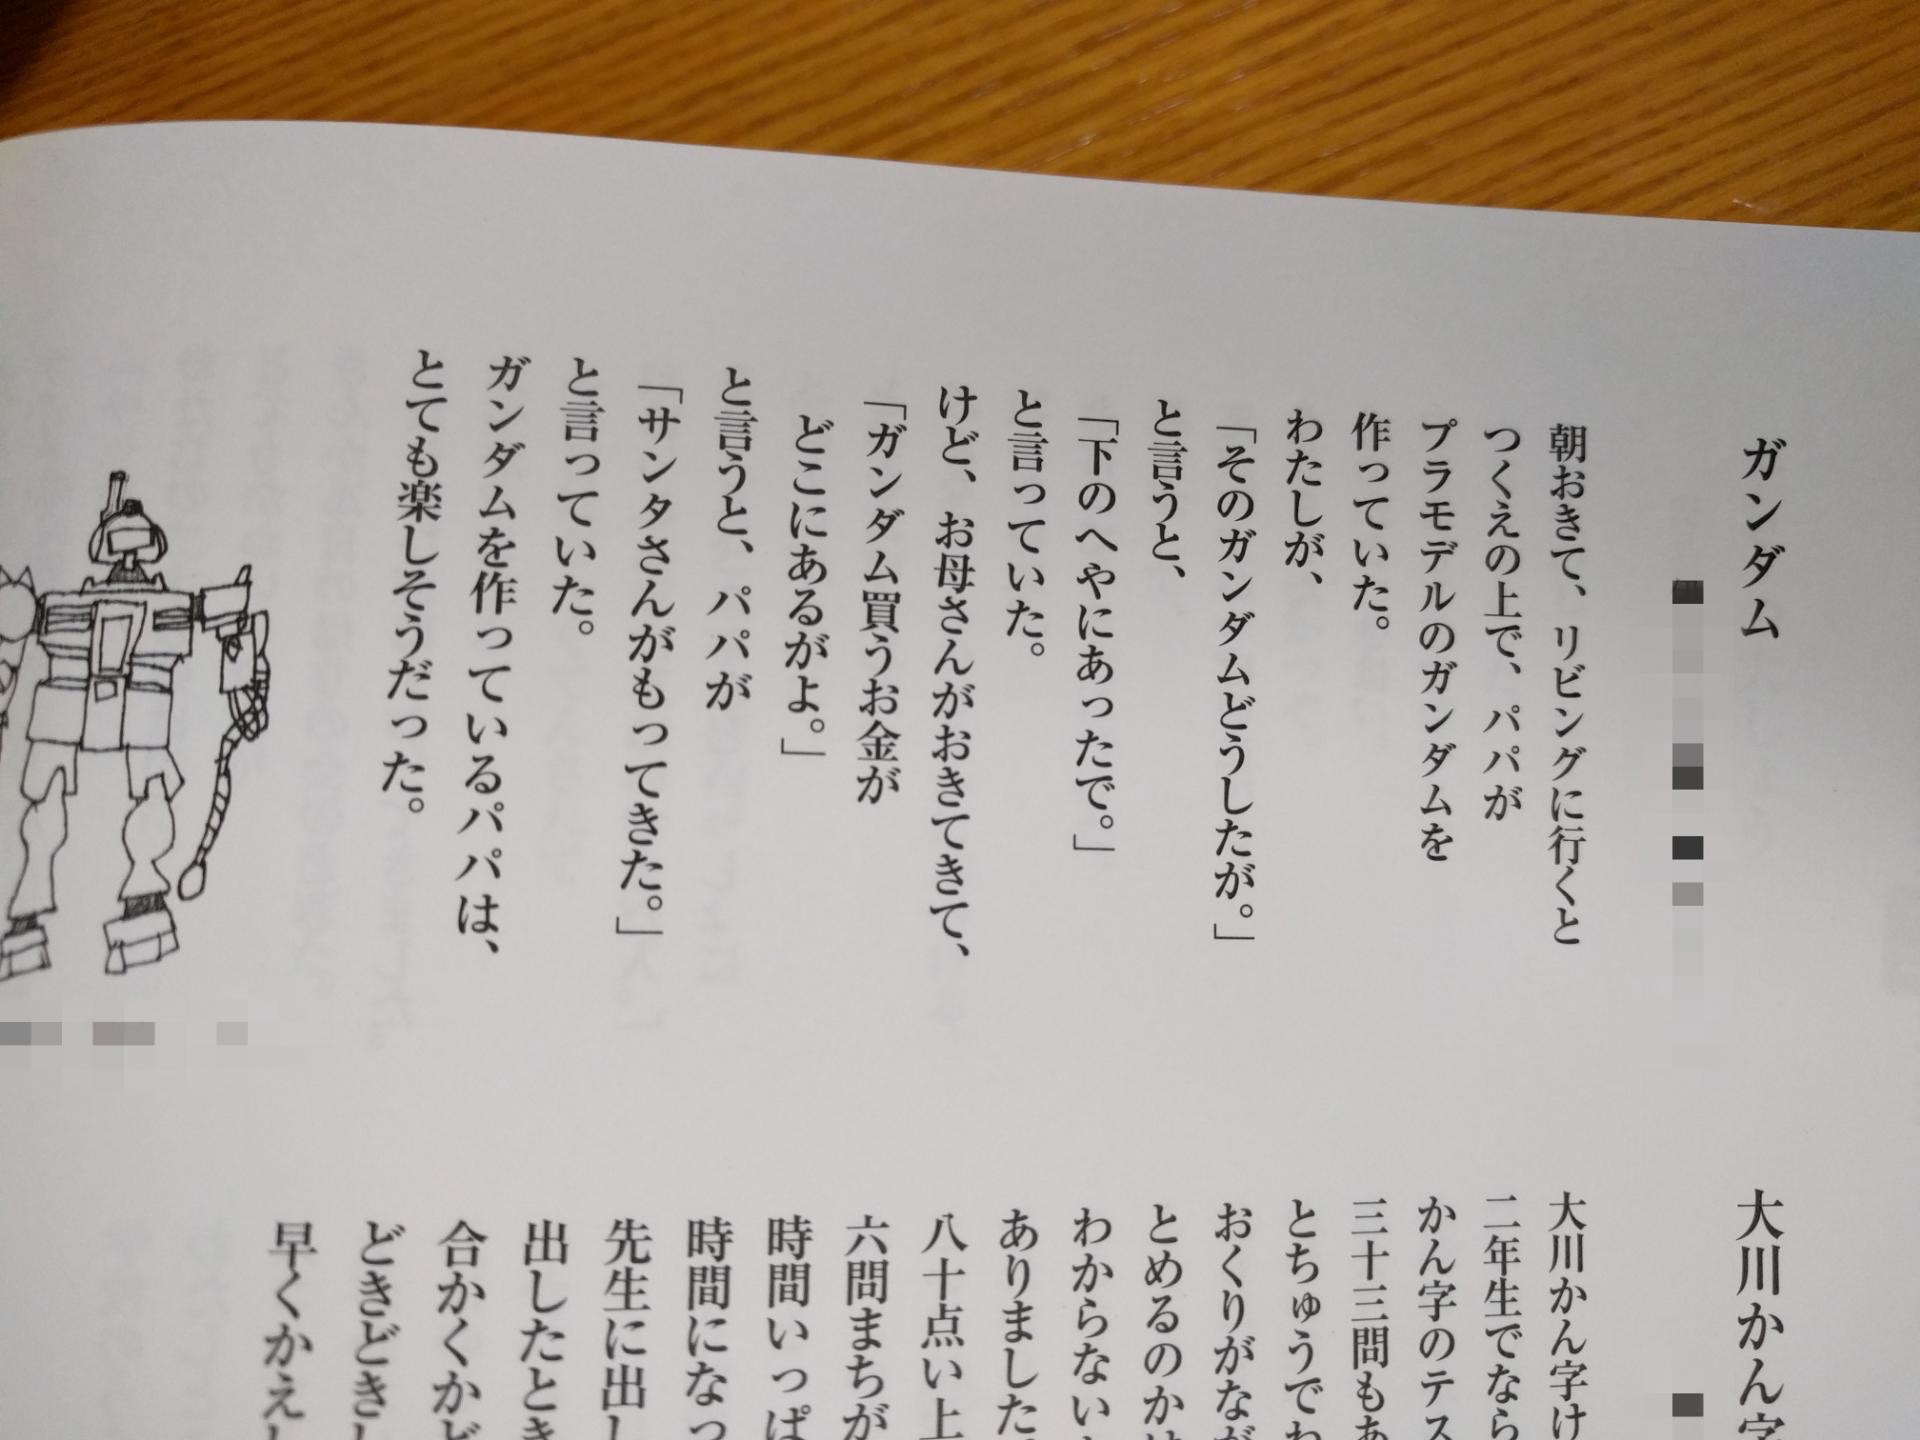 ガンダム
朝おきて、リビングに行くと
つくえの上で、パパが
プラモデルのガンダムを
作っていた。
わたしが、
「そのガンダムどうしたが。」
と言うと、
「下のへやにあったで。」
と言っていた。
けど、お母さんがおきてきて、
「ガンダム買うお金が
どこにあるがよ。」
と言うと、パパが
「サンタさんがもってきた。」
と言っていた。
ガンダムを作っているパパは、
とても楽しそうだった。
大川かん字
大川かん字け
二年生でなら
かん字のテス
三十三問もあ
とちゅうでわ
おくりがなが
とめるのかは
わからない
ありました
八十点い上
六問まちが
時間いっぱ
時間になっ
先生に出し
出したとき
合かくかど
どきどきし
早くかえし